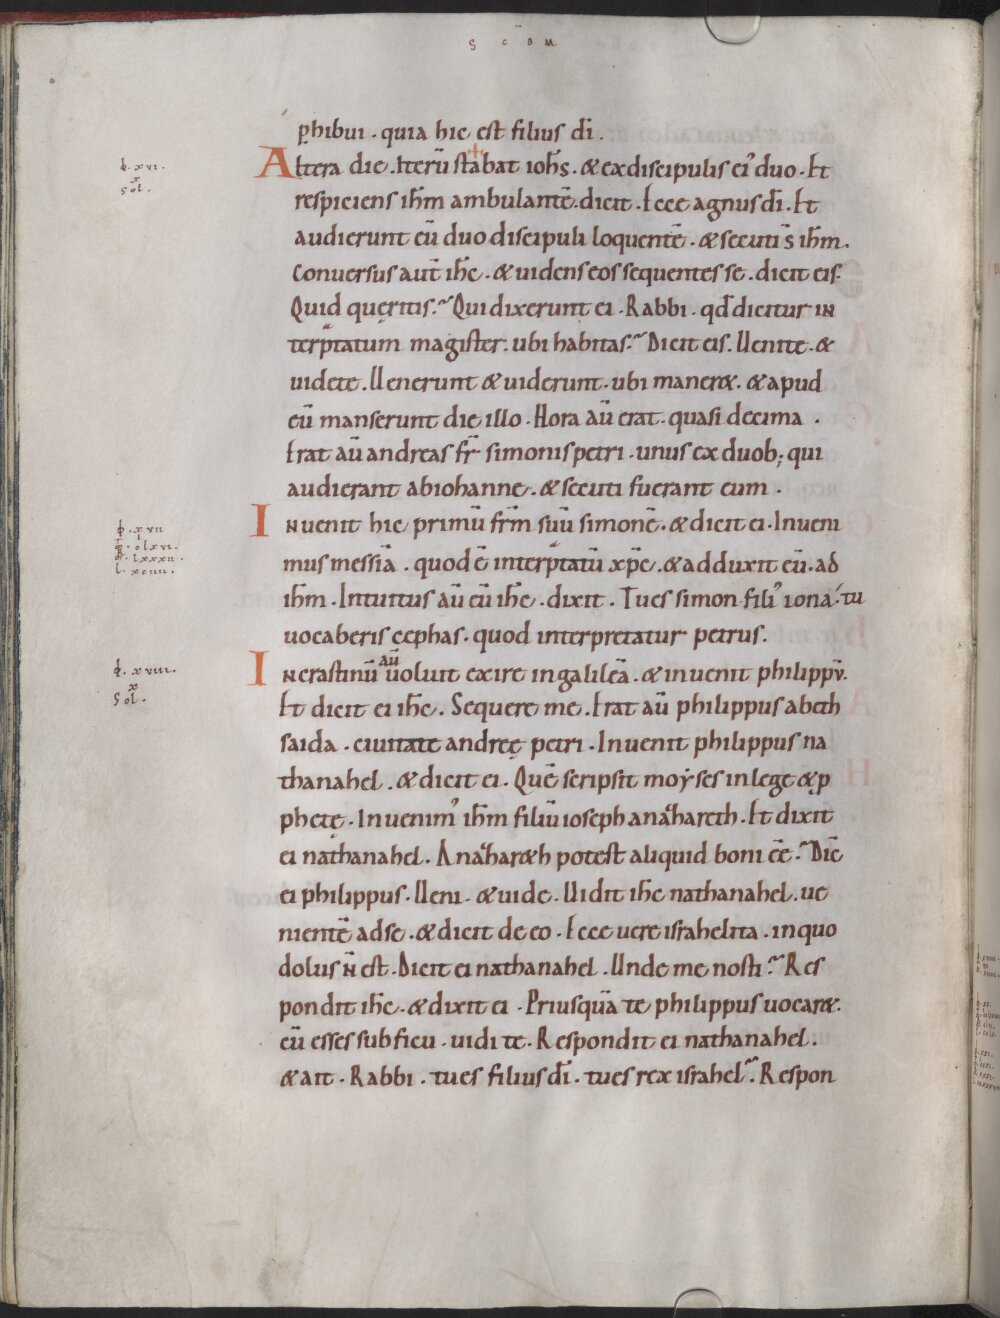 S C D M
phibui · quia hic est filius dī .
Altera die . Iterū stabat ioh̄s . & exdiscipulis ei᾿ duo . Et
respiciens ih̄m ambulantē . dicit . Ecce agnus dī . Et
audierunt eū duo discipuli loquentē . & secuti s̄ ih̄m .
Conuersus aut̄ ih̄c . & uidens eos sequentes se . dicit eis .
Quid queritis . Qui dixerunt ei . Rabbi . qđ dicitur in
terp̄tatum magister . ubi habitas . Dicit eis . Uenite . &
uidete . Uenerunt & uiderunt . ubi maner& . & apud
eū manserunt die illo . Hora aū erat . quasi decima .
Erat aū andreas fr̄ simonis petri . unus ex duob; qui
audierant abiohanne . & secuti fuerant eum .
Inuenit hic primū fr̄m suū simonē . & dicit ei . Inueni
mus messiā . quod ē interp̄tatū xp̄c . & adduxit eū . ad
ih̄m . Intuitus aū eū ih̄c . dixit . Tu es simon fili᾿ iona . tu
uocaberis cephas . quod interpretatur petrus .
In crastinū aū uoluit exire in galileā . & inuenit philippū .
Et dicit ei ih̄c . Sequere me . Erat aū philippus abeth
saida . ciuitate andreę petri . Inuenit philippus na
thanahel . & dicit ei . Quē scripsit moẏses in lege & p
phetę . Inuenim᾿ ih̄m filiū ioseph anazhareth . Et dixit
ei nathanahel . Anazhar&h potest aliquid boni eē . Dic̄
ei philippus . Ueni . & uide . Uidit ih̄c nathanahel . ue
nientē adse . & dicit de eo . Ecce uere israhelita . in quo
dolus n̄ est . Dicit ei nathanahel . Unde me nosti . Res
pondit ih̄c . & dixit ei . Priusquā te philippus uocar& .
cū esses sub ficu . uidi te . Respondit ei nathanahel .
& ait . Rabbi . tu es filius dī . tu es rex israhel . Respon
ꝑ . xvi .
x
sol .
ꝑ . xvii
l . xciiii .
ꝑ . xviii .
x
sol .